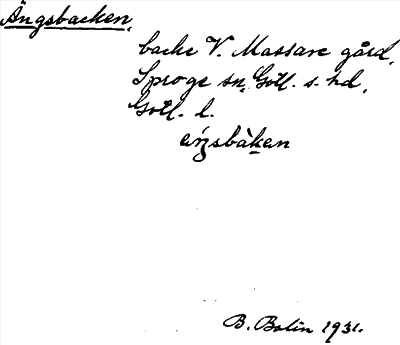 Ängsbacken,
backe V. Massare gård,
Sproge sn, Gotl. s. hd,
Gotl. l.
B. Bolin 1931.